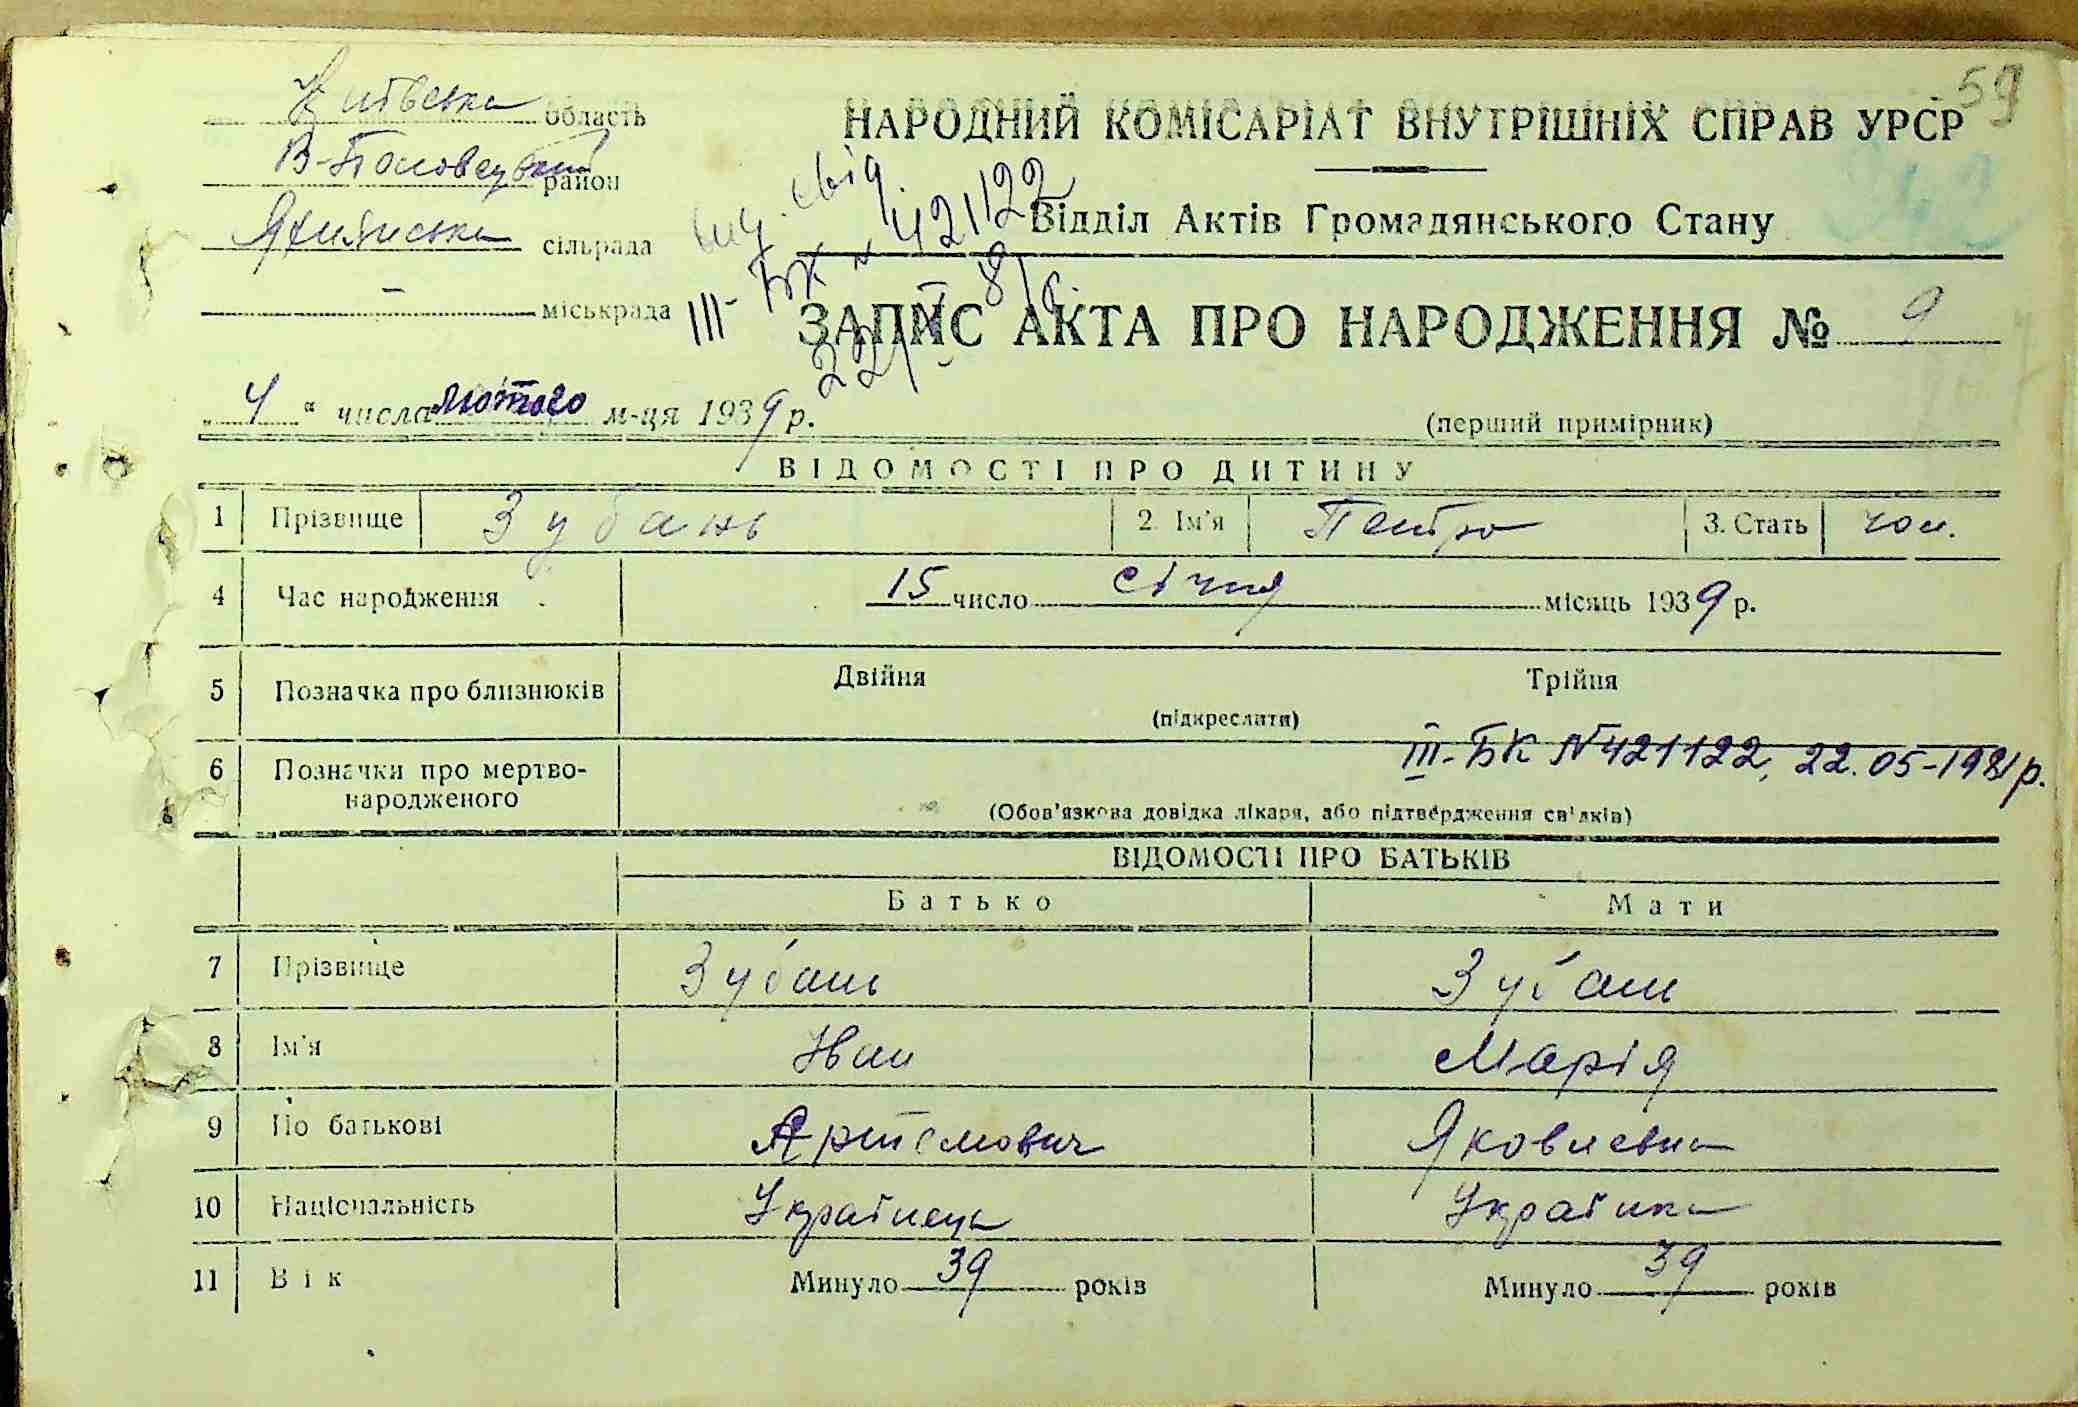 59
Київська область
В-Половецький район
сільрада
— міськрада
НАРОДНИЙ КОМІСАРІАТ ВНУТРІШНІХ СПРАВ УРСР
242
Відділ Актів Громадянського Стану
вид. свід.
III-БК № 421122
22/V-81р.
ЗАПИС АКТА ПРО НАРОДЖЕННЯ № 9
„4“ числа лютого м-ця 1939 р.
(перший примірник)
ВІДОМОСТІ ПРО ДИТИНУ
1 Прізвище Зубань 2. Ім'я Петро 3. Стать чол.
4 Час народження 15 число січня місяць 1939 р.
5 Позначка про близнюків Двійня Трійня
(підкреслити)
6 Позначки про мертво-
народженого
III-БК №421122, 22.05-1981р.
(Обов'язкова довідка лікаря, або підтвердження свідків)
ВІДОМОСТІ ПРО БАТЬКІВ
Батько Мати
7 Прізвище Зубань Зубань
8 Ім'я Иван Марія
9 По батькові Артемович Яковлевна
10 Національність Українець Українка
11 Вік Минуло 39 років Минуло 39 років